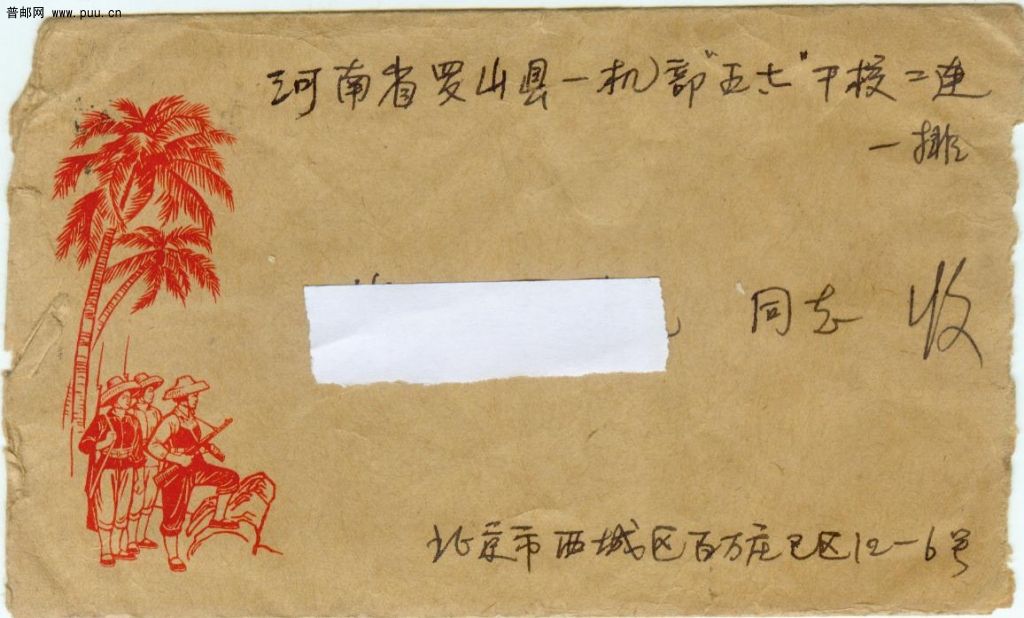 普邮网 www.puu.cn
河南省罗山县一机部"五七"干校二连
一排
同志 收
北京市西城区百万庄巳区12-6号